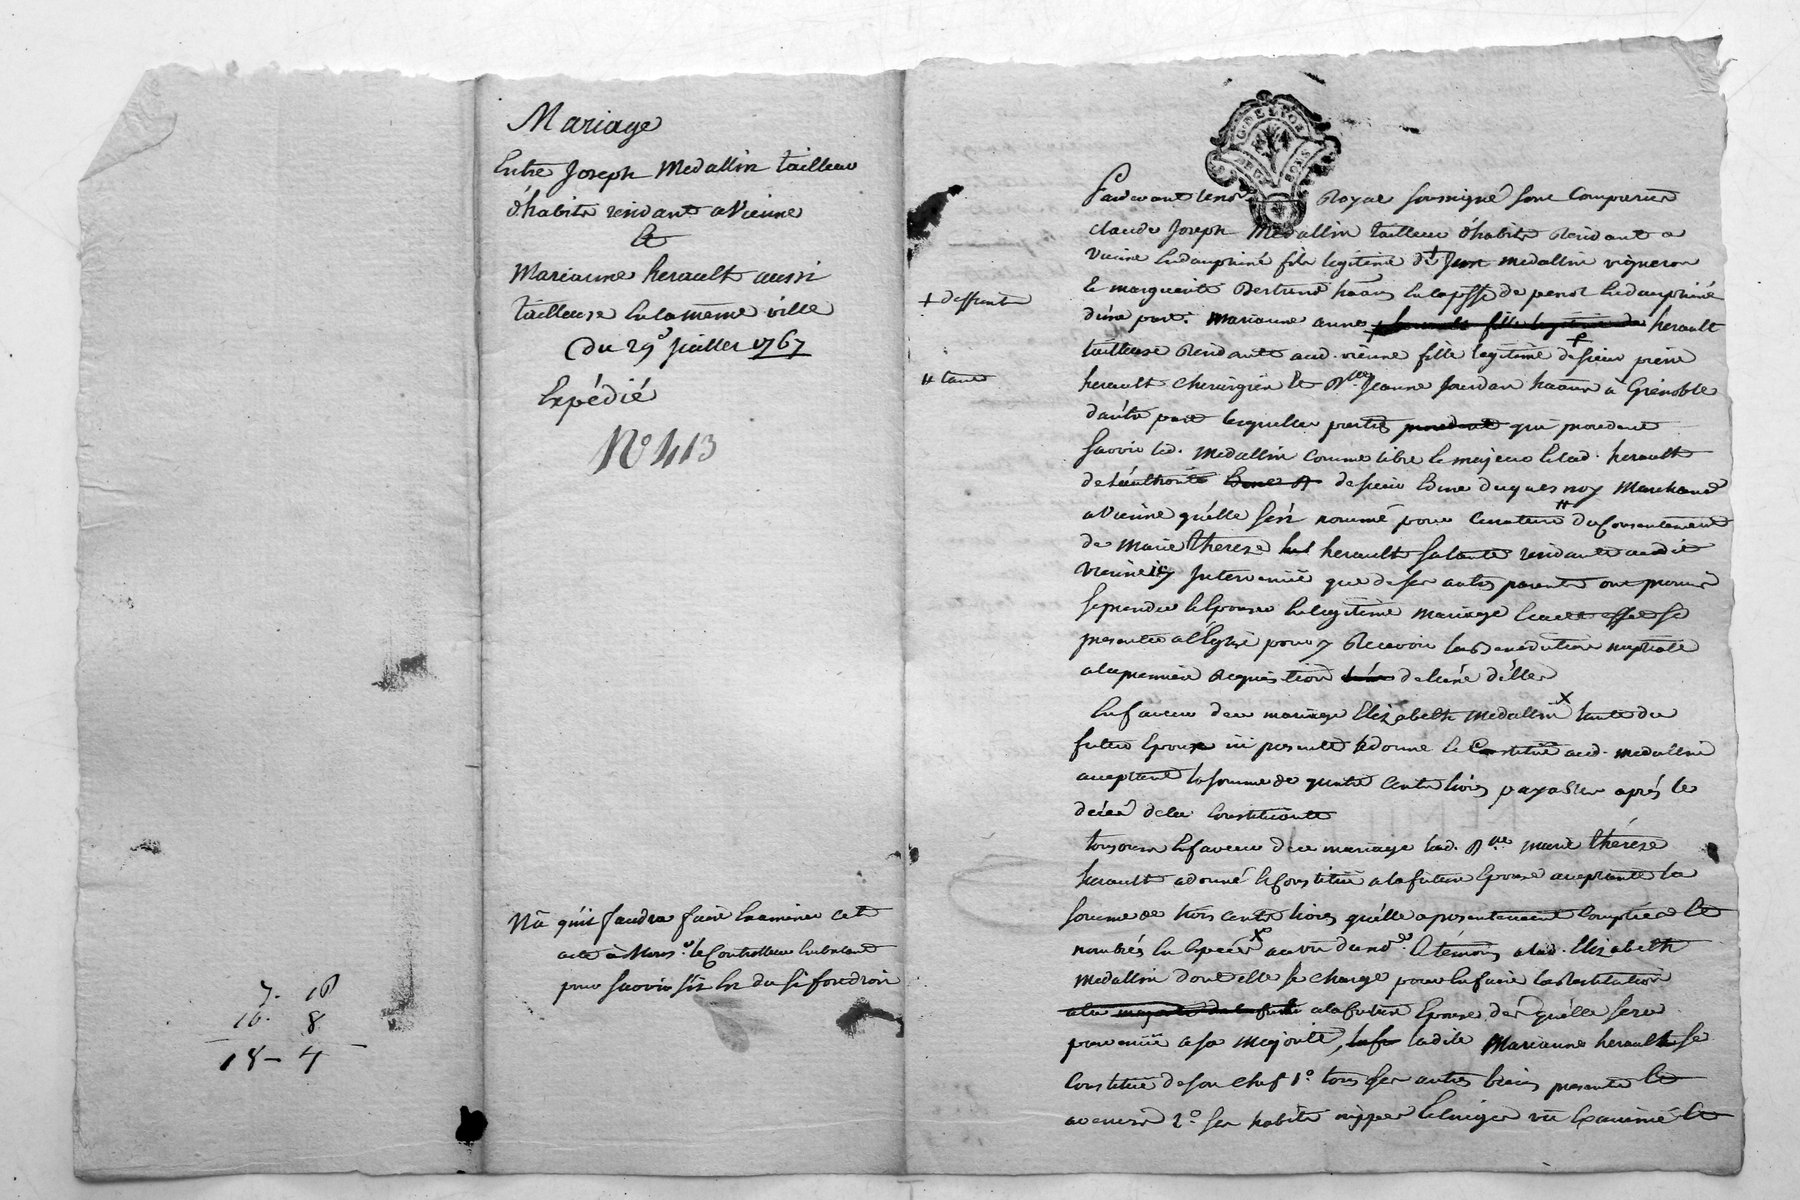 Mariage
Entre Joseph Medallin tailleur
d'habits residant a Vienne
Et
Marianne herault aussi
tailleuse en la même ville
Du 29e juillet 1767
Expédié
N° 413
Na qu'il faudra faire Examiner cet
acte à Monsr le Controlleur
pour savoir s'il
7. 16
10. 8
18 - 4
+ deffunt
# tante
Pardevant le nore Royal soussigné sont comparus
claude Joseph Medallin tailleur d'habits Residant a
Vienne en dauphiné fils legitime de + Jean medallin vigneron
Et marguerite Bertrand en la psse de penol en dauphiné
d'une part. Marianne anne herault
tailleuse Residante aud. vienne fille legitime de sieur pierre
herault chirurgien Et Dlle Jeanne Jourdan a Grenoble
d'autre part lesquelles parties procedant qui procedant
savoir led. Medallin comme libre Et majeur Et lad. herault
de l'authorité de sieur duquesnoy Marchand
a Vienne qu'elle s'est nommé pour Curateur du Consentement
de Marie therese herault sa tante residante audit
Vienne icy Intervenuë que de ses autres parents ont promis
se prendre Et Epouser en legitime mariage Et a cet effet se
presenter a l'Eglise pour y Recevoir la Benediction nuptiale
a la premiere Requisition de l'une d'elles
En faveur du mariage Elizabeth Medallin x tante du
futur Epoux ici presente a donné Et Constitué aud. medallin
acceptant la somme de quatre Cents livres payable après le
décès de la Constituante
toujours En faveur du mariage lad. Dlle marie thérèse
herault a donné Et Constitué a la future Epouse acceptante la
somme de trois cents livres qu'elle a presentement Comptées Et
nombrés En Especes x au vu du nore Et témoins a lad. Elizabeth
Medallin dont elle se charge pour En faire la Restitution
a la majorité de la future a la future Epouse des qu'elle sera
parvenuë a sa majorité, ladite Marianne herault se
Constitue de son Chef 1° tous ses autres biens presents Et
avenir 2° ses habits nippes Et linges vu Examiné Et